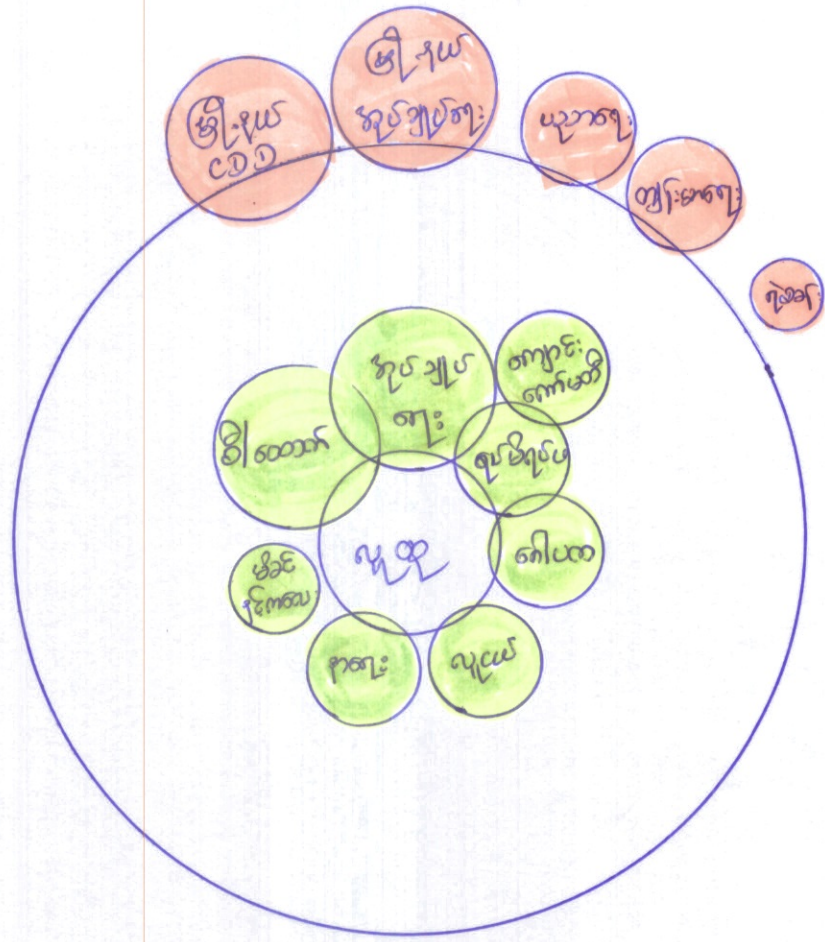 မြို့နယ်
CDD
မြို့နယ်
အုပ်ချုပ်ရေး
ပညာရေး
ကျန်းမာရေး
ရဲစခန်း
အုပ်ချုပ်
ရေး
ကျောင်း
ကော်မတီ
စီ/ထောက်
ရပ်မိရပ်ဖ
လူထု
ဂေါပက
မိခင်
နှင့်ကလေး
နာရေး
လူငယ်